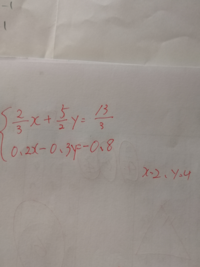 -1
1
{ 2/3 x + 5/2 y = 13/3
0.2x - 0.3y = -0.8
x=2, y=4